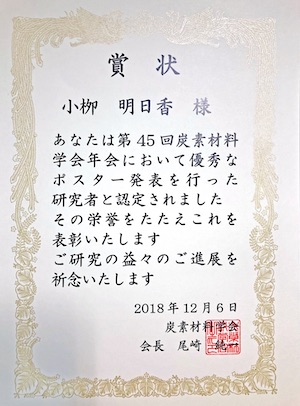 賞状
小柳 明日香 様
あなたは第45回炭素材料
学会年会において優秀な
ポスター発表を行った
研究者と認定されました
その栄誉をたたえこれを
表彰いたします
ご研究の益々のご進展を
祈念いたします
2018年12月6日
炭素材料学会
会長 尾崎 純一